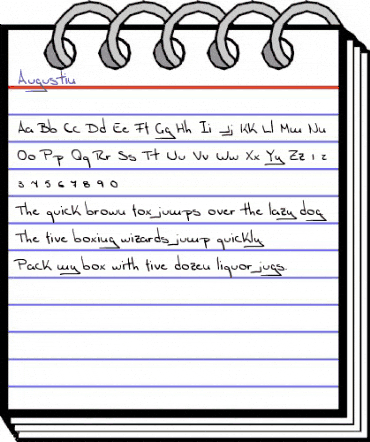 Augustin
Aa Bb Cc Dd Ee Ff Gg Hh Ii Jj KK Ll Mm Nn
Oo Pp Qq Rr Ss Tt Uu Vv Ww Xx Yy Zz 1 2
3 4 5 6 7 8 9 0
The quick brown fox jumps over the lazy dog
The five boxing wizards jump quickly
Pack my box with five dozen liquor jugs.